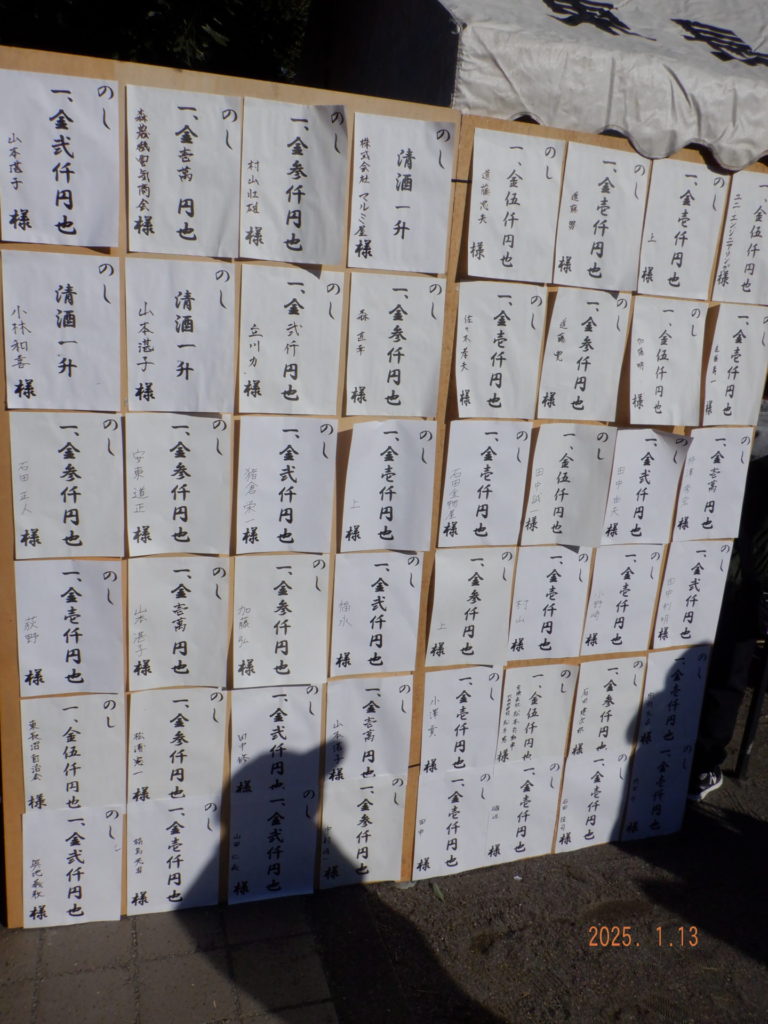 のし 一、金弐仟円也 山本湛子 様
のし 一、金壱萬円也 森農機電気商会 様
のし 一、金参仟円也 村山壮雄 様
のし 清酒一升 株式会社 マルミ屋 様
のし 一、金伍仟円也 遠藤忠夫 様
のし 一、金壱仟円也 様
のし 一、金壱仟円也 上 様
のし 一、金伍仟円也 ユニエンジニアリング 様
のし 清酒一升 小林和喜 様
のし 清酒一升 山本湛子 様
のし 一、金弐仟円也 立川力 様
のし 一、金参仟円也 様
のし 一、金壱仟円也 佐々木孝夫 様
のし 一、金参仟円也 様
のし 一、金伍仟円也 加藤 明 様
のし 一、金壱仟円也 様
のし 一、金参仟円也 石田正人 様
のし 一、金参仟円也 安東道正 様
のし 一、金弐仟円也 猪倉栄一 様
のし 一、金壱仟円也 上 様
のし 一、金壱仟円也 石田金物屋 様
のし 一、金伍仟円也 田中誠一 様
のし 一、金弐仟円也 様
のし 一、金壱萬円也 様
のし 一、金壱仟円也 荻野 様
のし 一、金壱萬円也 山本湛子 様
のし 一、金参仟円也 加藤弘 様
のし 一、金弐仟円也 様
のし 一、金参仟円也 上 様
のし 一、金壱仟円也 村山 様
のし 一、金壱仟円也 小野崎 様
のし 一、金弐仟円也 田中利明 様
のし 一、金伍仟円也 自治会 様
のし 一、金参仟円也 様
のし 一、金弐仟円也 田中修 様
のし 一、金壱萬円也 山本湛子 様
のし 一、金壱仟円也 小澤 様
のし 一、金伍仟円也
のし 一、金参仟円也
のし 一、金壱仟円也
一、金弐仟円也 様
のし 一、金壱仟円也 様
一、金弐仟円也 様
一、金参仟円也 様
一、金壱仟円也 田中 様
一、金壱仟円也 様
一、金壱仟円也 様
一、金壱仟円也
2025. 1.13